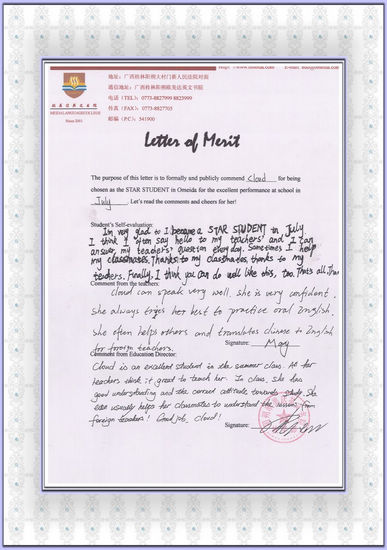 地址：广西桂林阳朔大村门县人民法院对面
通信地址：广西桂林阳朔欧美达英文书院
电话（TEL）：0773-8827999 8823999
传真（FAX）：0773-8827705
邮编（P.C）：541900
OMEIDA LANGUAGE COLLEGE
Since 2001
Letter of Merit
The purpose of this letter is to formally and publicly commend Cloud for being
chosen as the STAR STUDENT in Omeida for the excellent performance at school in
July. Let's read the comments and cheers for her!
Student's Self-evaluation:
I'm very glad to I became a STAR STUDENT in July.
I think I often say hello to my teachers' and I can
answer my teachers' question everyday. Sometimes I help
my classmates. Thanks to my classmates, thanks to my
teachers. Finally, I think you can do well like this, too. That's all,
Comment from the teachers:
Cloud can speak very well. she is very confident.
She always tries her best to practice oral English,
she often helps others and translates Chinese to English
for foreign teachers.
Signature: May
Comment from Education Director:
Cloud is an excellent student in the summer class. All her
teachers think it great to teach her. In class, she has
good understanding and the correct attitude towards study. She
even usually helps her classmates to understand the lessons from
foreign teachers! Good job, Cloud!
Signature: